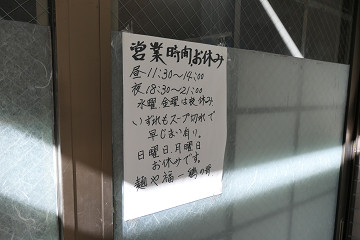 営業時間お休み
昼11:30〜14:00
夜18:30〜21:00
水曜、金曜は夜休み
いずれもスープ切れで
早じまい有り。
日曜日、月曜日
お休みです。
麺や福一